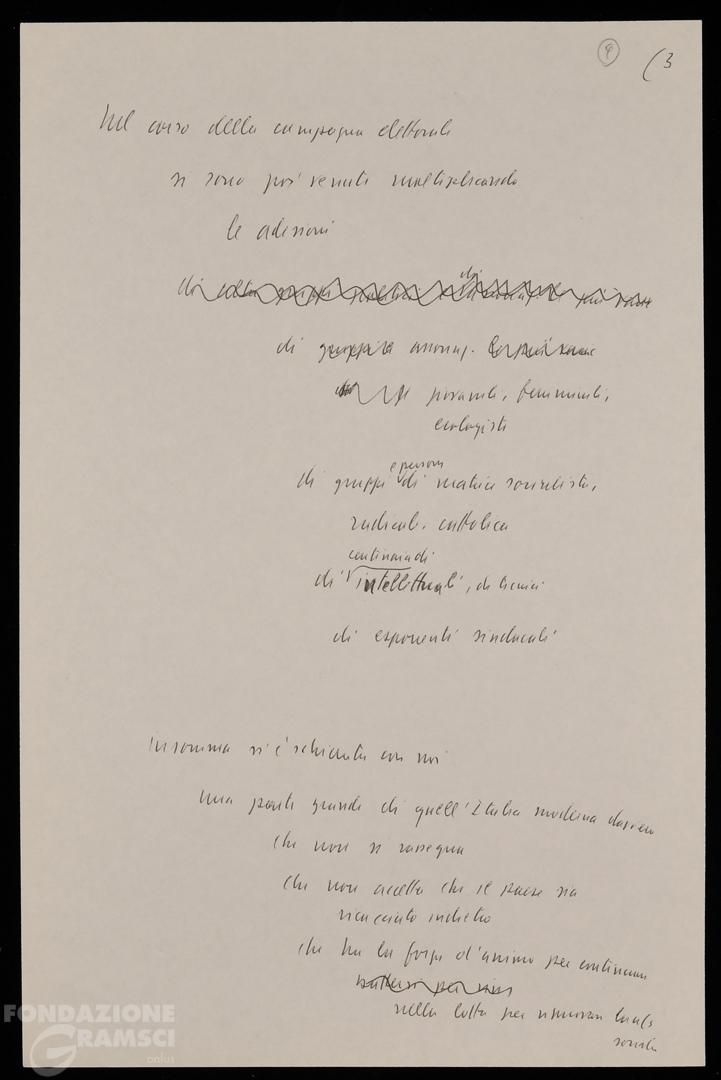 9
(3
Nel corso della campagna elettorale
si sono poi venute moltiplicando
le adesioni
di
di gruppi e associaz.
giovanili, femminili,
ecologisti
e persone
di gruppi di matrice socialista,
radicale, cattolica
centinaia di
di intellettuali, di tecnici
di esponenti sindacali
Insomma si è schierata con noi
una parte grande di quell'Italia moderna davvero
che non si rassegna
che non accetta che il paese sia
ricacciato indietro
che ha la forza d'animo per continuare
nella lotta per rinnovare la
FONDAZIONE
GRAMSCI
onlus